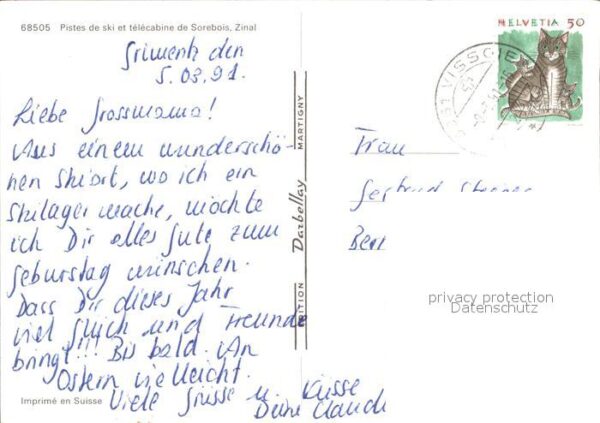 68505 Pistes de ski et télécabine de Sorebois, Zinal
Grimentz den
5.03.91.
Liebe Grossmama!
Aus einem wunderschö-
nen Skiort, wo ich ein
Skilager mache, möchte
ich Dir alles Gute zum
Geburstag wünschen.
Dass Dir dieses Jahr
viel Glück und Freunde
bringt!!! Bis bald. An
Ostern vielleicht.
Viele Grüsse u. Küsse
Deine
Imprimé en Suisse
EDITION Darbellay MARTIGNY
HELVETIA 50
VISSOIE
Frau
Gertrud
Bern
privacy protection
Datenschutz